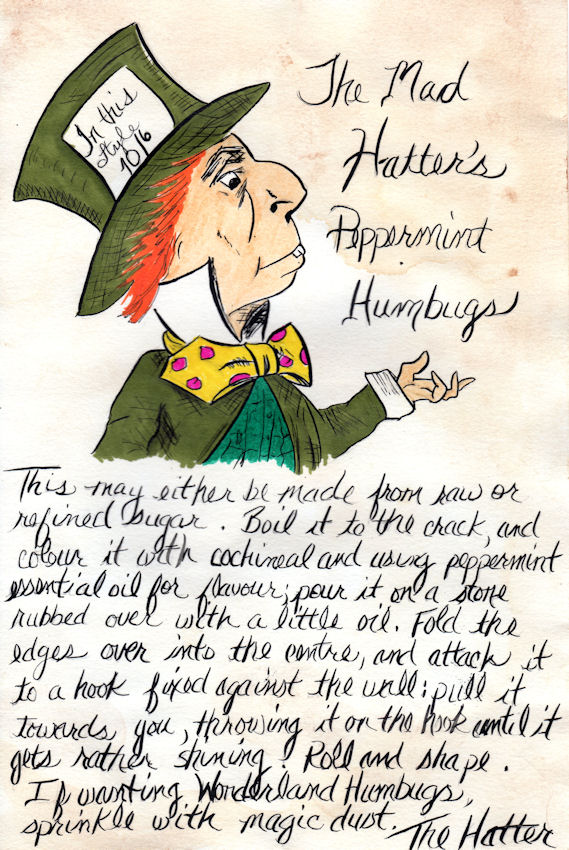 In this
Style
10/6
The Mad
Hatter's
Peppermint
Humbugs
This may either be made from raw or
refined sugar. Boil it to the crack, and
colour it with cochineal and using peppermint
essential oil for flavour; pour it on a stone
rubbed over with a little oil. Fold the
edges over into the centre, and attach it
to a hook fixed against the wall: pull it
towards you, throwing it on the hook until it
gets rather shining. Roll and shape.
If wanting Wonderland Humbugs,
sprinkle with magic dust.
The Hatter